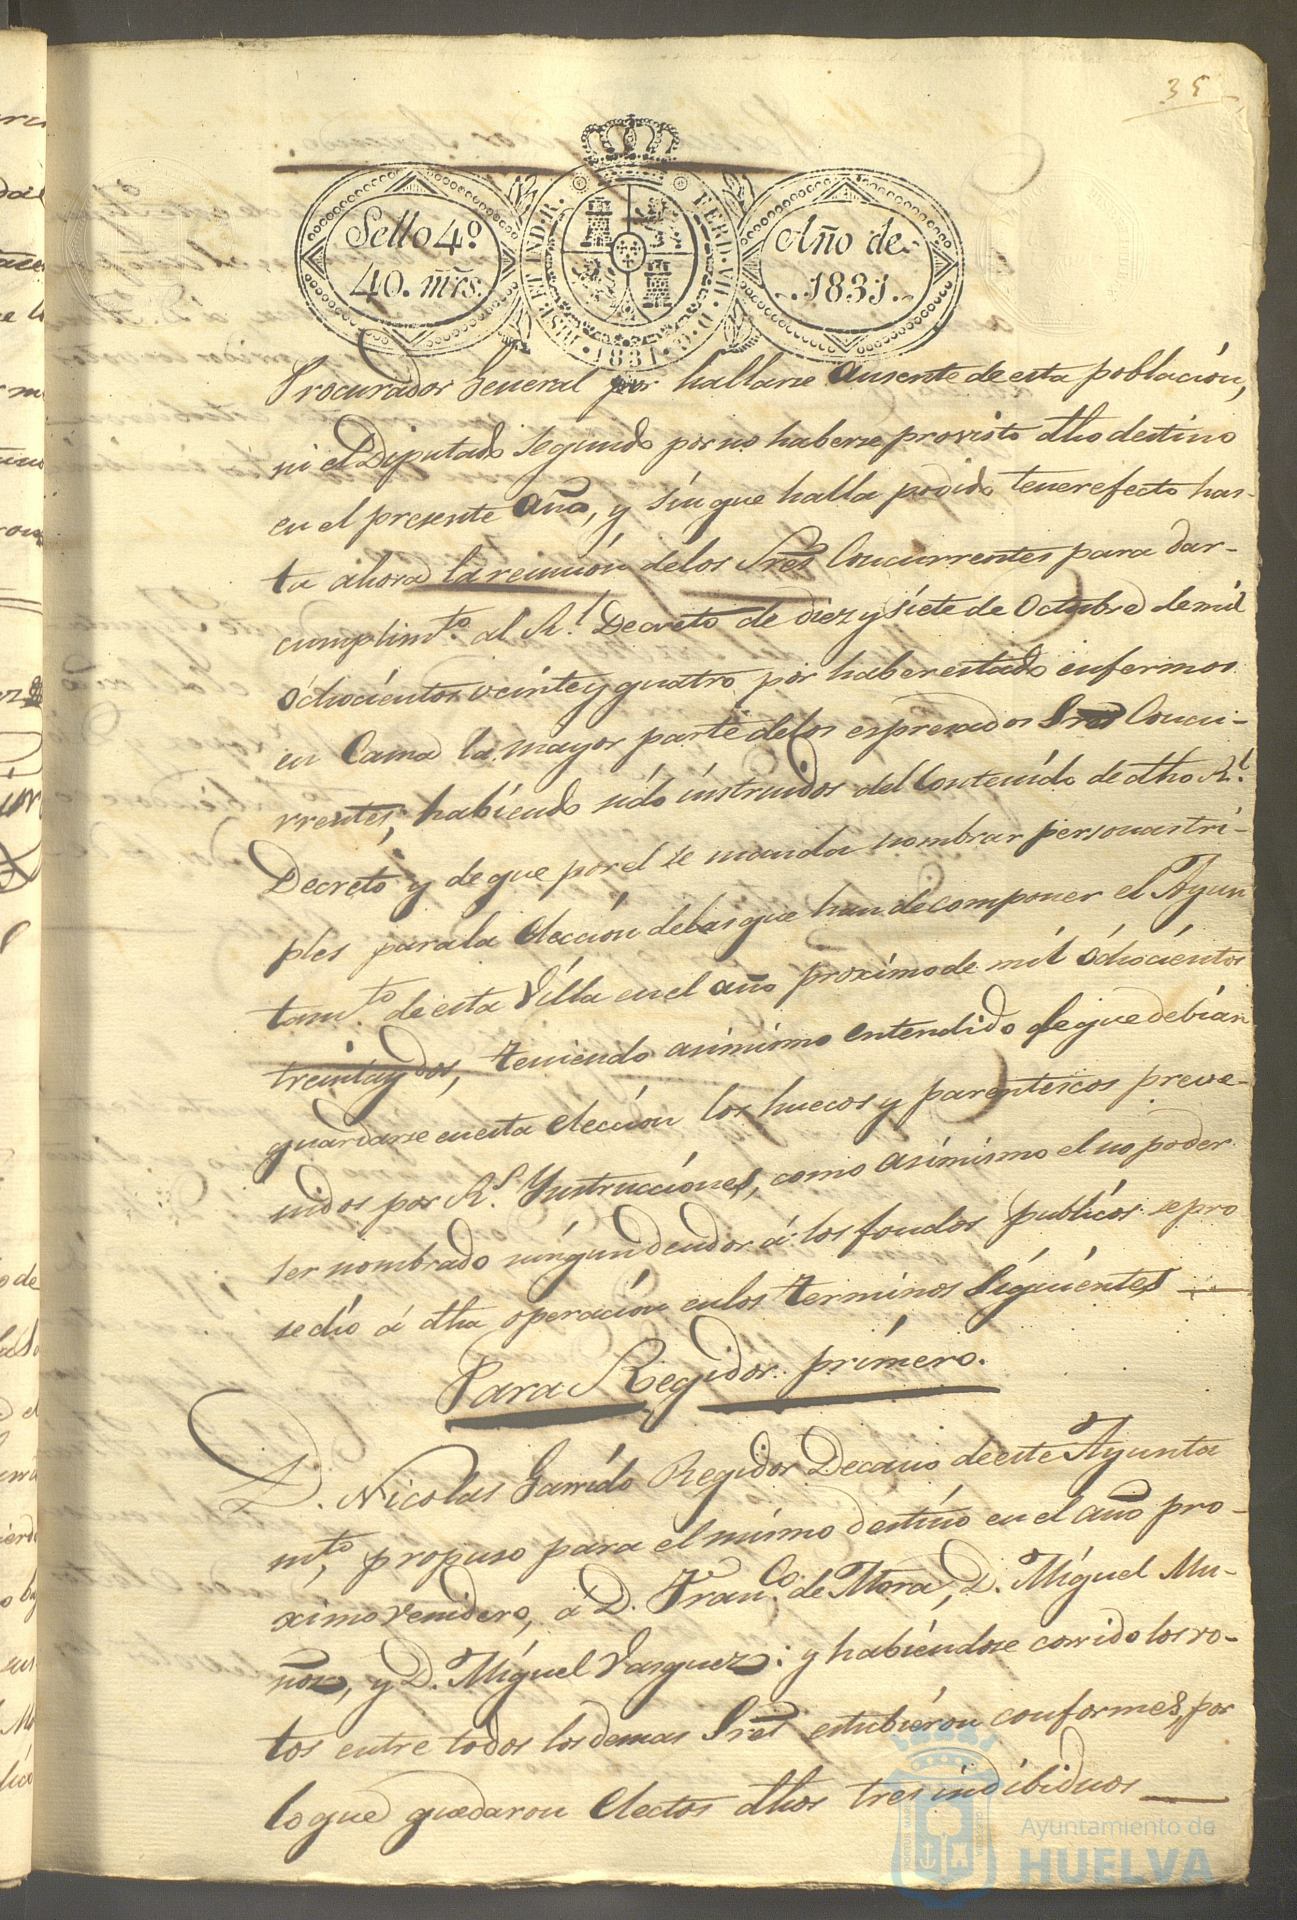 35
Sello 4º
40. mrs.
HISP. ET IND. R.
FERD. VII. D. G.
1831
Año de
1831.
Procurador General por hallarse ausente de esta población,
ni el Diputado segundo por no haberse provisto dho destino
en el presente año, y sin que halla podido tener efecto has-
ta ahora la reunión de los Sres Concurrentes para dar-
cumplimto. al Rl. Decreto de diez y siete de Octubre de mil
óchocientos veinte y quatro por haber estado enfermos
en Cama la mayor parte de los espresados Sres Concu-
rrentes, habiendo sido instruidos del Contenido de dho Rl.
Decreto y de que por el se manda nombrar personas tri-
ples para la elección de las que han de componer el Ayun
tamto. de esta Villa en el año proximo de mil óchocientos
treinta y dos, teniendo asimismo entendido de que debían
guardarse en esta elección los huecos y parentescos preve-
nidos por Rs. Ynstrucciónes, como asimismo el no poder
ser nombrado ningun deudor á los fondos publicos se pro
sedió á dha operación en los terminos Siguientes
Para Regidor primero.
D. Nicolas Garrido Regidor Decano de este Ayunta
mto, propuso para el mismo destino en el año pro-
ximo venidero, á D. Franco. de Mora, D. Miguel Mu-
ñoz, y D. Miguel Vasquez: y habiéndose corrido los vo-
tos entre todos los demas Sres estubieron conformes, por
lo que quedaron electos dhos tres indibiduos
Ayuntamiento de
HUELVA